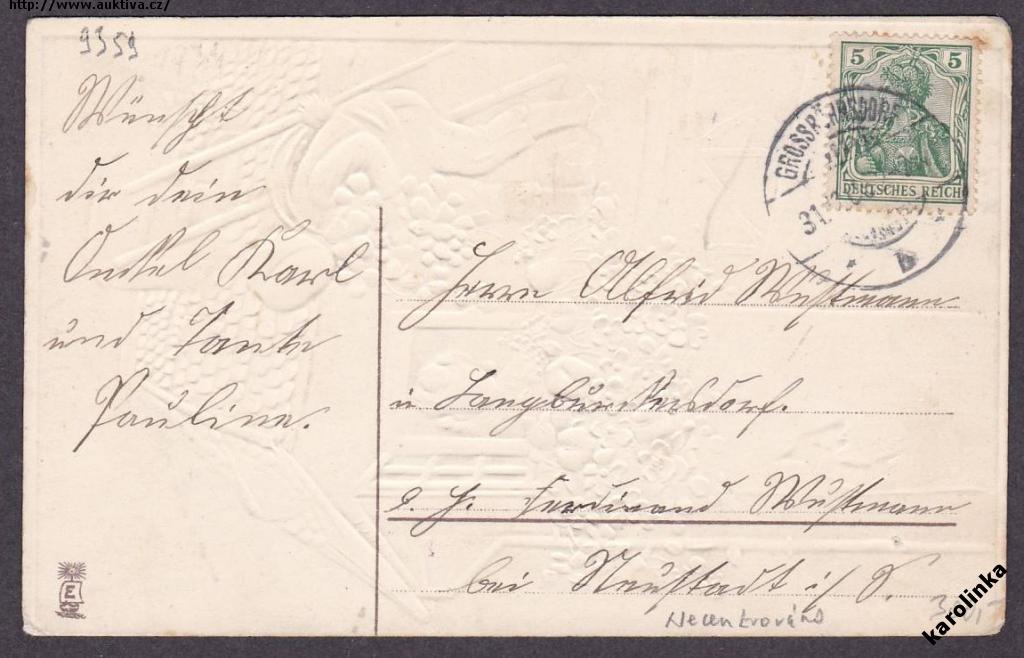 http://www.auktiva.cz/
9359
Wünscht
dir dein
Onkel Karl
und Tante
Pauline.
5 5
DEUTSCHES REICH
GROSSRÖHRSDORF
31
b
Herrn Alfrid Wustmann
in Langburkersdorf.
b. H. Ferdinand Wustmann
bei Neustadt i/S.
E
karolinka